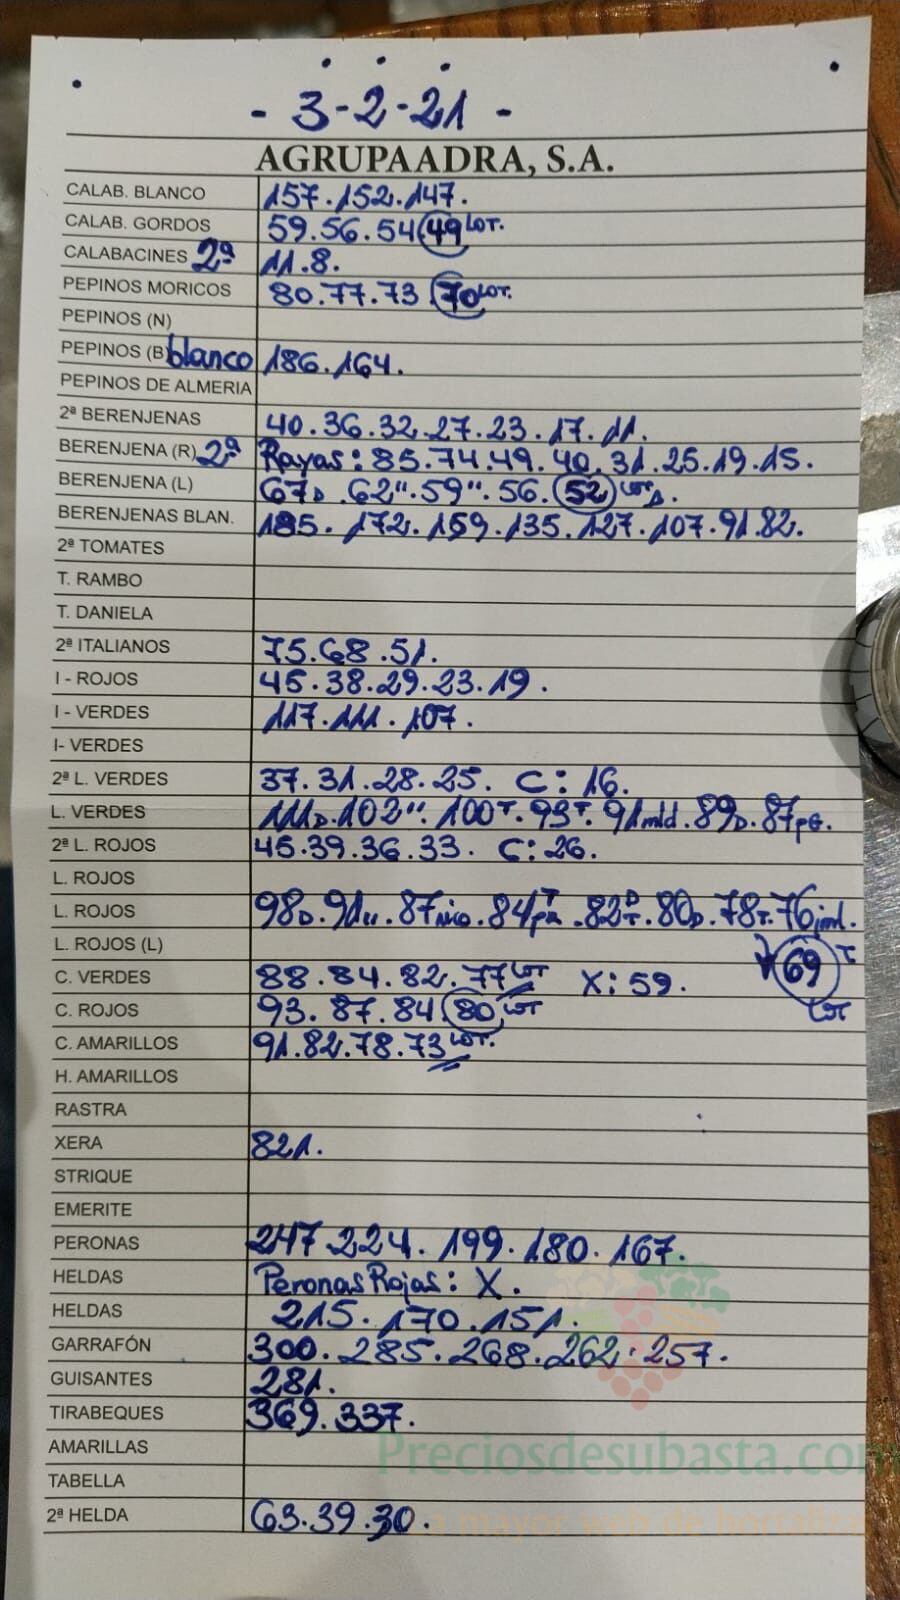 - 3-2-21 -
AGRUPAADRA, S.A.
CALAB. BLANCO 157.152.147.
CALAB. GORDOS 59.56.54 49 LOT.
CALABACINES 2ª 11.8.
PEPINOS MORICOS 80.77.73.70 LOT.
PEPINOS (N)
PEPINOS (B) blanco 186.164.
PEPINOS DE ALMERIA
2ª BERENJENAS 40.36.32.27.23.17.11.
BERENJENA (R) 2ª Rayas: 85.74.49.40.31.25.19.15.
BERENJENA (L) 67D.62".59".56.52 LOT D.
BERENJENAS BLAN. 185.172.159.135.127.107.91.82.
2ª TOMATES
T. RAMBO
T. DANIELA
2ª ITALIANOS 75.68.51.
I - ROJOS 45.38.29.23.19.
I - VERDES 117.111.107.
I- VERDES
2ª L. VERDES 37.31.28.25. C: 16.
L. VERDES 111D.102".100T.93T.91mld.89D.87pG.
2ª L. ROJOS 45.39.36.33. C: 26.
L. ROJOS
L. ROJOS 98D.91".87nio.84.82.80D.78T.76jml.
L. ROJOS (L) 69 T LOT
C. VERDES 88.84.82.77 LOT X: 59.
C. ROJOS 93.87.84 80 LOT
C. AMARILLOS 91.82.78.73 LOT.
H. AMARILLOS
RASTRA
XERA 821.
STRIQUE
EMERITE
PERONAS 247.224.199.180.167.
HELDAS Peronas Rojas: X.
HELDAS 215.170.151.
GARRAFÓN 300.285.268.262.257.
GUISANTES 281.
TIRABEQUES 369.337.
AMARILLAS
Preciosdesubasta.com
TABELLA
2ª HELDA 63.39.30.
La mayor web de hortaliza